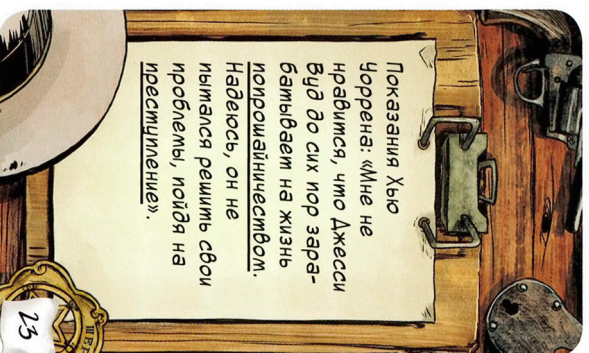 Показания Хью
Уоррена: «Мне не
нравится, что Джесси
Вуд до сих пор зара-
батывает на жизнь
попрошайничеством.
Надеюсь, он не
пытался решить свои
проблемы, пойдя на
преступление».
23